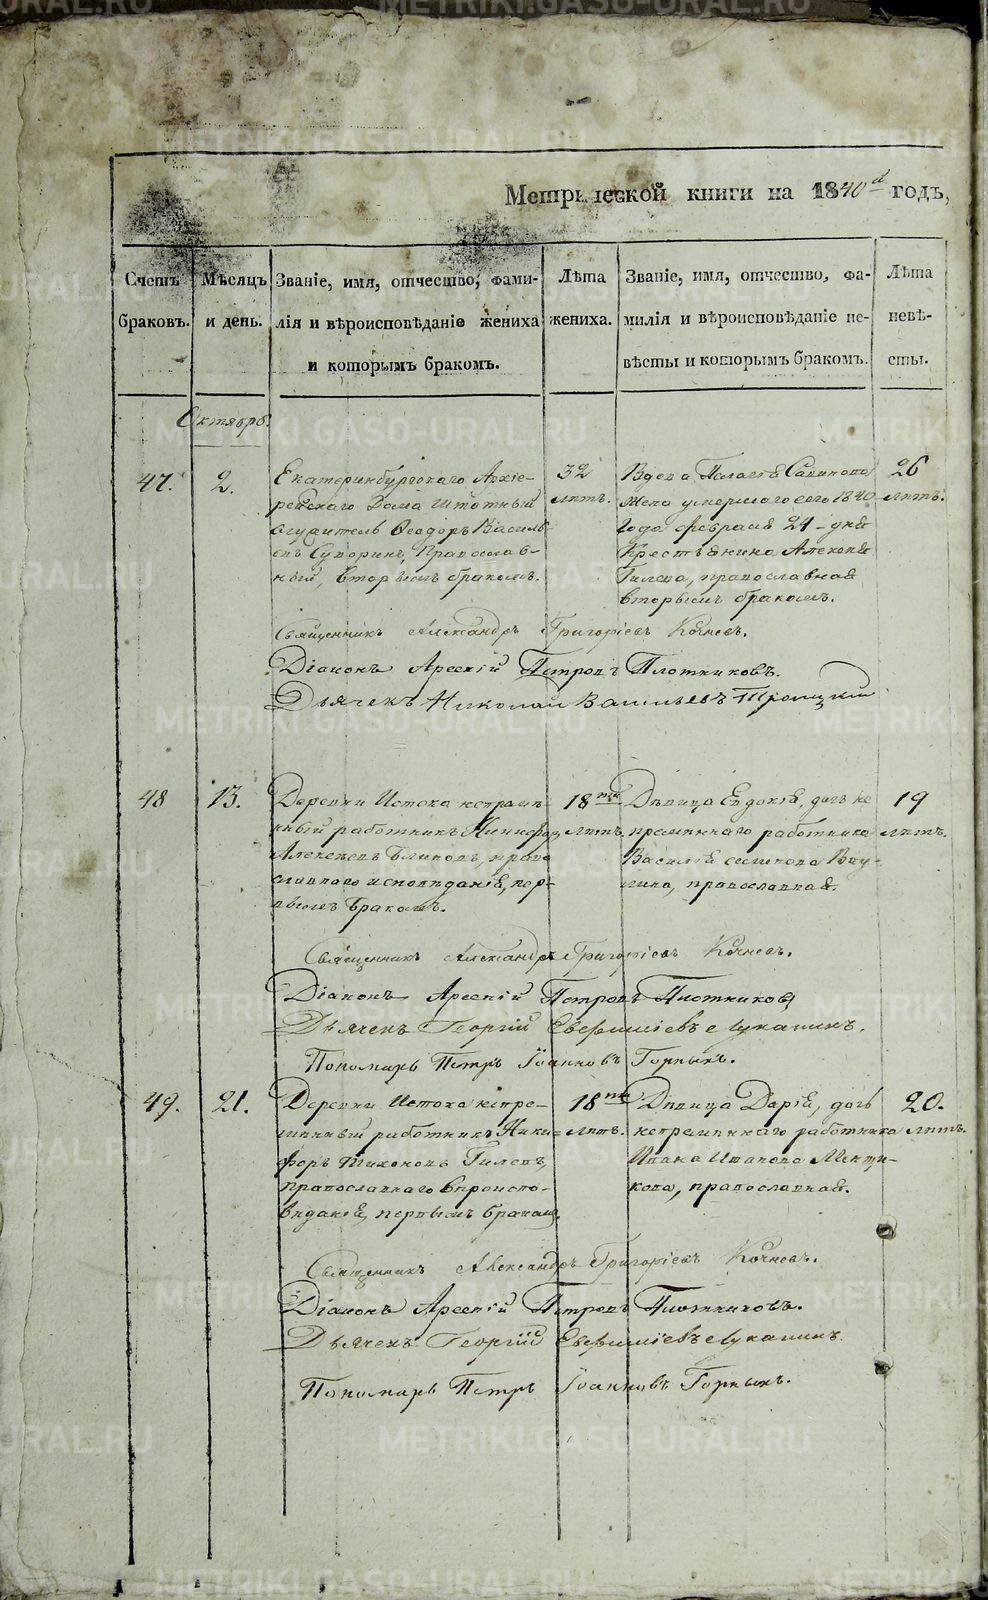 Метрической книги на 1840й годъ,
Счетъ браковъ.
Мѣсяцъ и день.
Званіе, имя, отчество, фами-
лія и вѣроисповѣданіе жениха
и которымъ бракомъ.
Лѣта
жениха.
Званіе, имя, отчество, фа-
милія и вѣроисповѣданіе не-
вѣсты и которымъ бракомъ.
Лѣта
невѣ-
сты.
Октябрь.
47.
2.
Екатеринбургскаго Архіе-
рейскаго Дома штатный
служитель Ѳеодоръ Василь
евъ Суворинъ, Православ-
ный, вторымъ бракомъ.
32
лѣтъ.
Вдова Пелагея Савинова
жена умершаго сего 1840
года февраля 24 дня
Крестьянина Алексѣя
Гилева, православная
вторымъ бракомъ.
26
лѣтъ.
Священникъ Александръ Григоріевъ Кочневъ.
Діаконъ Арсеній Петровъ Плотниковъ.
Дьячекъ Николай Васильевъ Троицкій
48
13.
Деревни Истока непремѣ-
нный работникъ Никифор
Алексѣевъ Блиновъ, право
славнаго исповѣданія, пер-
вымъ бракомъ.
18ти
лѣтъ.
Дѣвица Евдокія, дочь не
премѣннаго работника
Василія
православная.
19
лѣтъ.
Священникъ Александръ Григоріевъ Кочневъ.
Діаконъ Арсеній Петровъ Плотниковъ
Дьячекъ Георгій Евфиміевъ Луканинъ.
Пономарь Петръ Іоанновъ Горныхъ.
49.
21.
Деревни Истока непре-
мѣнный работникъ Ники-
форъ Тихоновъ Гилевъ,
православнаго вѣроиспо-
вѣданія, первымъ бракомъ.
18ти
лѣтъ.
Дѣвица Дарія, дочь
непремѣннаго работника
Ивана Иванова Менщи-
кова, православная.
20.
лѣтъ.
Священникъ Александръ Григоріевъ Кочневъ.
Діаконъ Арсеній Петровъ Плотниковъ.
Дьячекъ Георгій Евфиміевъ Луканинъ.
Пономарь Петръ Іоанновъ Горныхъ.
METRIKI.GASO-URAL.RU